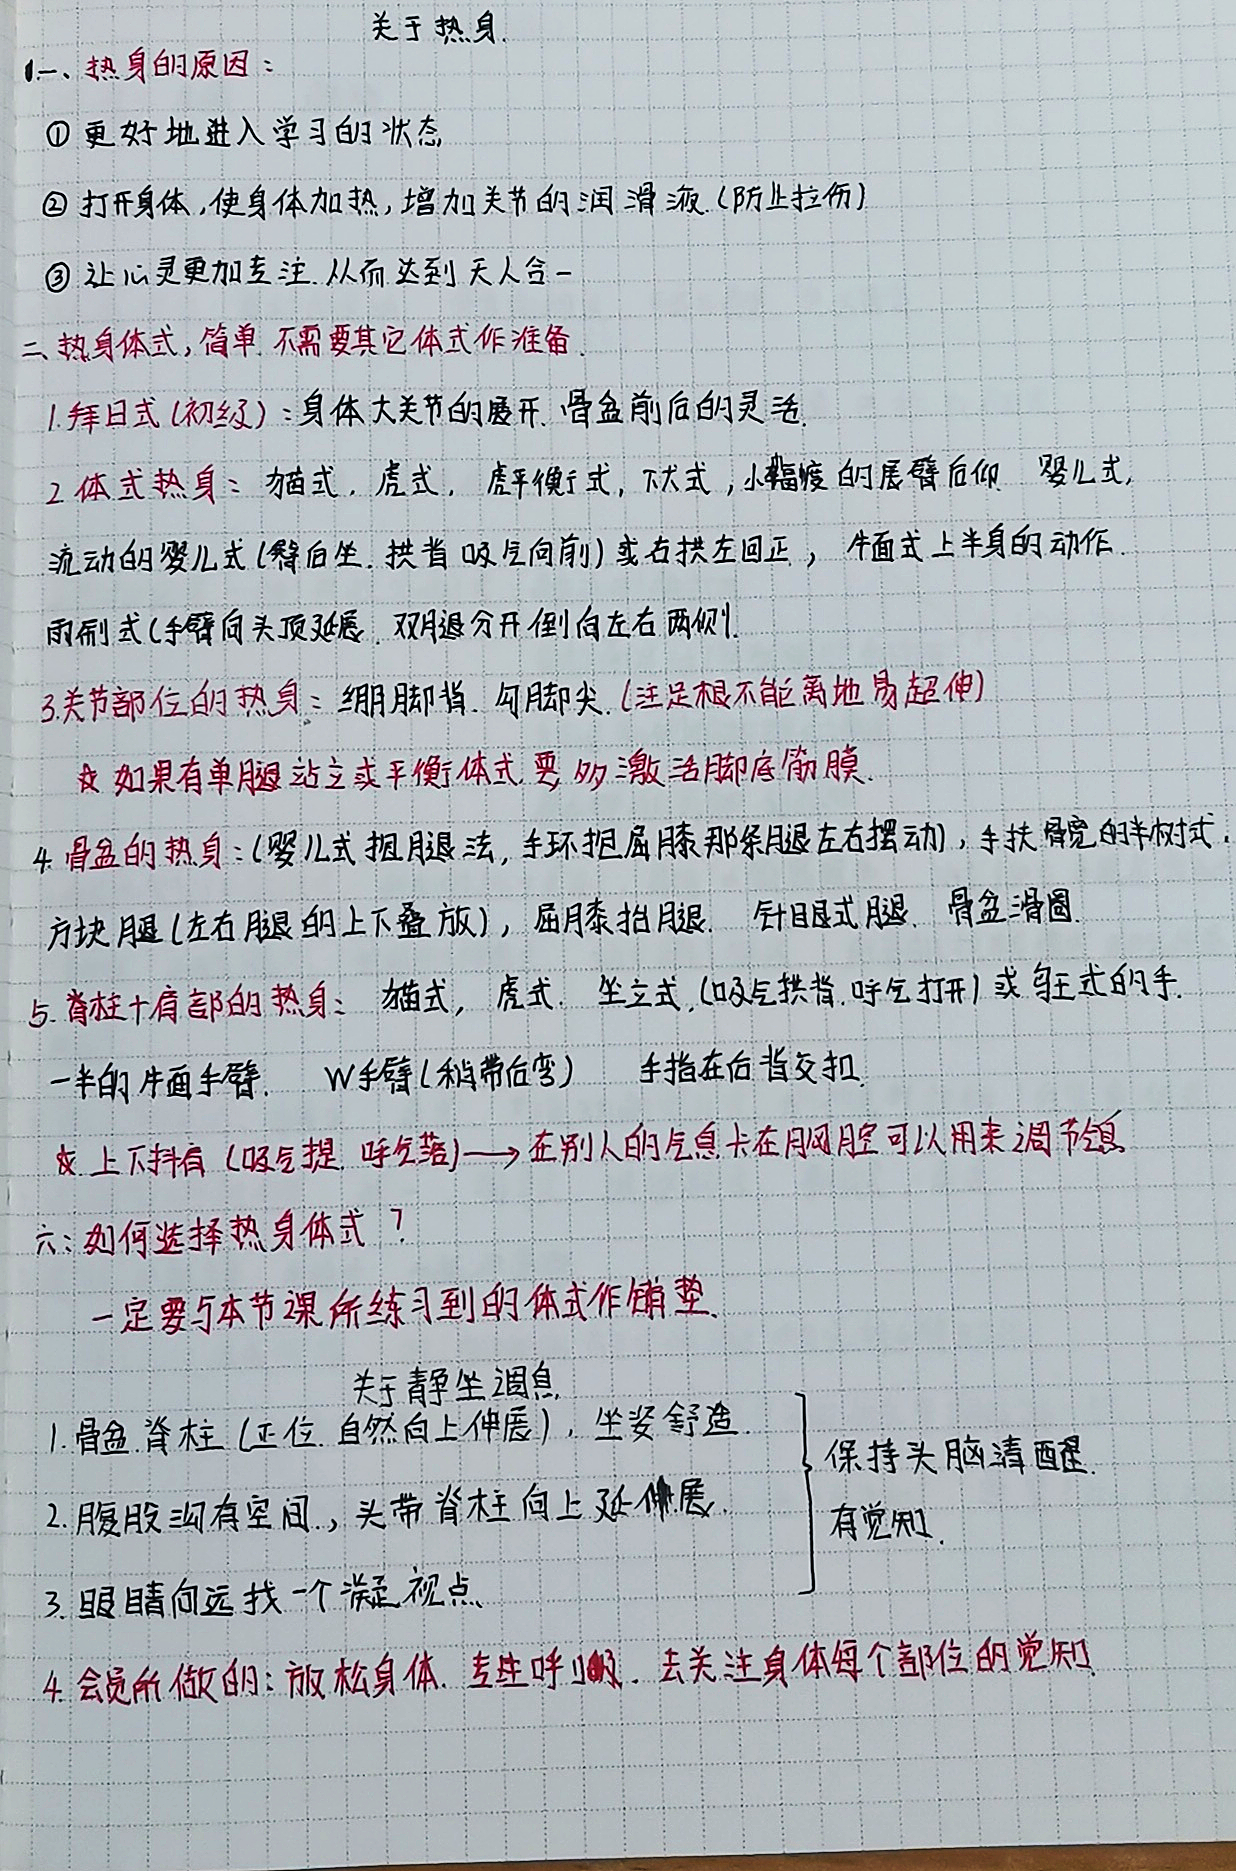 关于热身.
一、热身的原因：
① 更好地进入学习的状态
② 打开身体,使身体加热,增加关节的润滑液.(防止拉伤)
③ 让心灵更加专注.从而达到天人合一
二、热身体式,简单.不需要其它体式作准备.
1.拜日式(初级)：身体大关节的展开.骨盆前后的灵活.
2 体式热身：猫式.虎式.虎平衡式,下犬式,小幅度的展臂后仰 婴儿式,
流动的婴儿式(臀后坐.拱背吸气向前)或右拱左回正, 牛面式上半身的动作.
雨刷式(手臂向头顶延展.双腿分开倒向左右两侧.
3.关节部位的热身：绷脚背.勾脚尖.(注足根不能离地易超伸)
☆ 如果有单腿站立或平衡体式.要多激活脚底筋膜.
4.骨盆的热身：(婴儿式抱腿法,手环抱屈膝那条腿左右摆动),手扶骨宽的半树式.
方块腿(左右腿的上下叠放),屈膝抬腿. 针眼式腿. 骨盆滑圆.
5.脊柱+肩部的热身： 猫式, 虎式. 坐立式.(吸气拱背.呼气打开)或鸟王式的手.
一半的牛面手臂. W手臂(稍带后弯) 手指在后背交扣.
☆ 上下抖肩(吸气提.呼气落)→在别人的气息卡在胸腔可以用来调节气息
六：如何选择热身体式？
一定要与本节课所练习到的体式作铺垫.
关于静坐调息
1.骨盆.脊柱(正位.自然向上伸展),坐姿舒适.
2.腹股沟有空间.,头带脊柱向上延伸展.
3.眼睛向远找一个凝视点.
保持头脑清醒.
有觉知.
4.会员所做的：放松身体.专注呼吸.去关注身体每个部位的觉知.